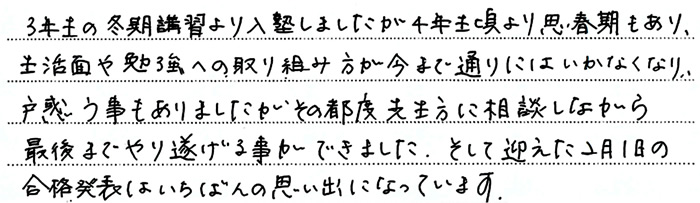 3年生の冬期講習より入塾しましたが4年生頃より思春期もあり、
生活面や勉強への取り組み方が今まで通りにはいかなくなり、
戸惑う事もありましたがその都度先生方に相談しながら
最後までやり遂げる事ができました。そして迎えた2月1日の
合格発表はいちばんの思い出になっています。